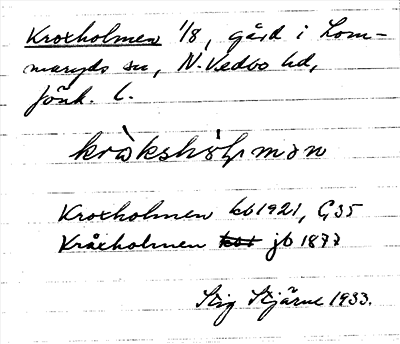 Kroxholmen 1/8, gård i Lom-
maryds sn, N. Vedbo hd,
Jönk. l.
kråkshólmən
Kroxholmen kb 1921, G35
Kråxholmen jb 1877
Stig Stjärne 1933.